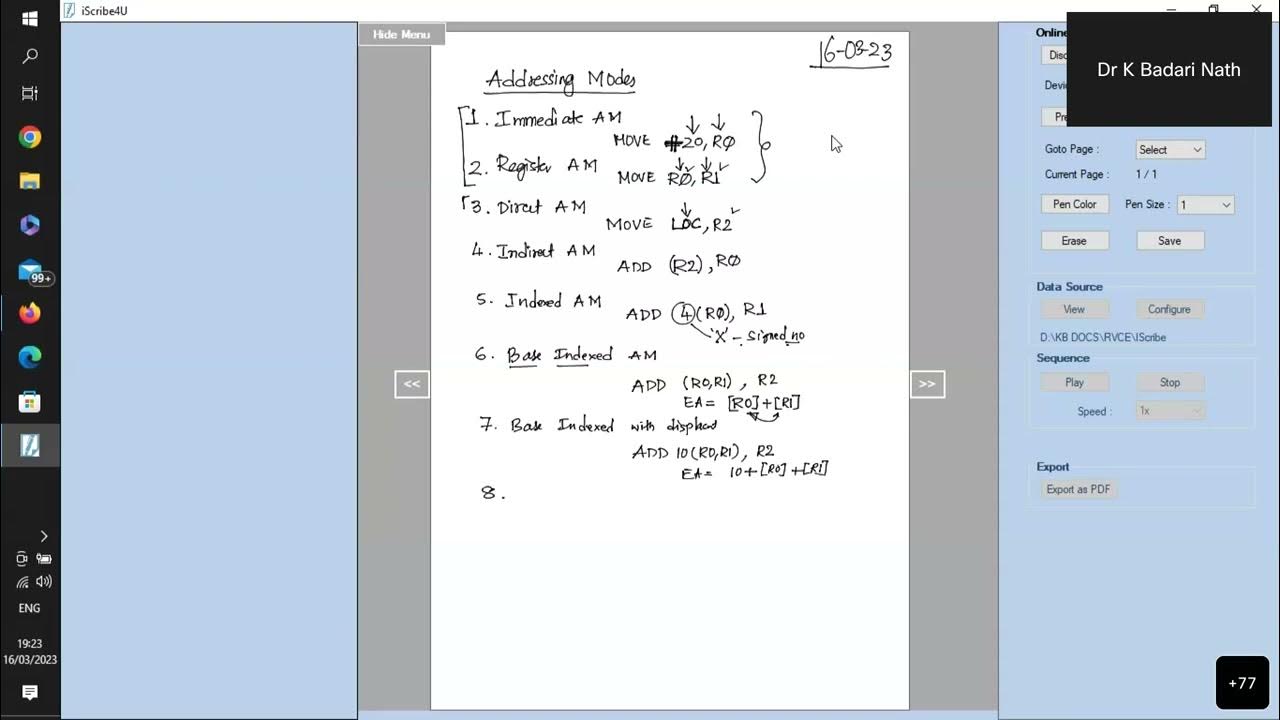 iScribe4U
Hide Menu
16-03-23
Addressing Modes
1. Immediate AM
MOVE #20, R0
2. Register AM
MOVE R0, R1
3. Direct AM
MOVE LOC, R2
4. Indirect AM
ADD (R2), R0
5. Indexed AM
ADD 4(R0), R1
'X' - signed no
6. Base Indexed AM
ADD (R0,R1), R2
EA = [R0]+[R1]
7. Base Indexed with displacmt
ADD 10(R0,R1), R2
EA = 10+[R0]+[R1]
8.
<<
>>
Onlin
Disc
Devic
Pre
Dr K Badari Nath
Goto Page : Select
Current Page : 1 / 1
Pen Color Pen Size : 1
Erase Save
Data Source
View Configure
D:\KB DOCS\RVCE\IScribe
Sequence
Play Stop
Speed : 1x
Export
Export as PDF
+77
99+
ENG
19:23
16/03/2023